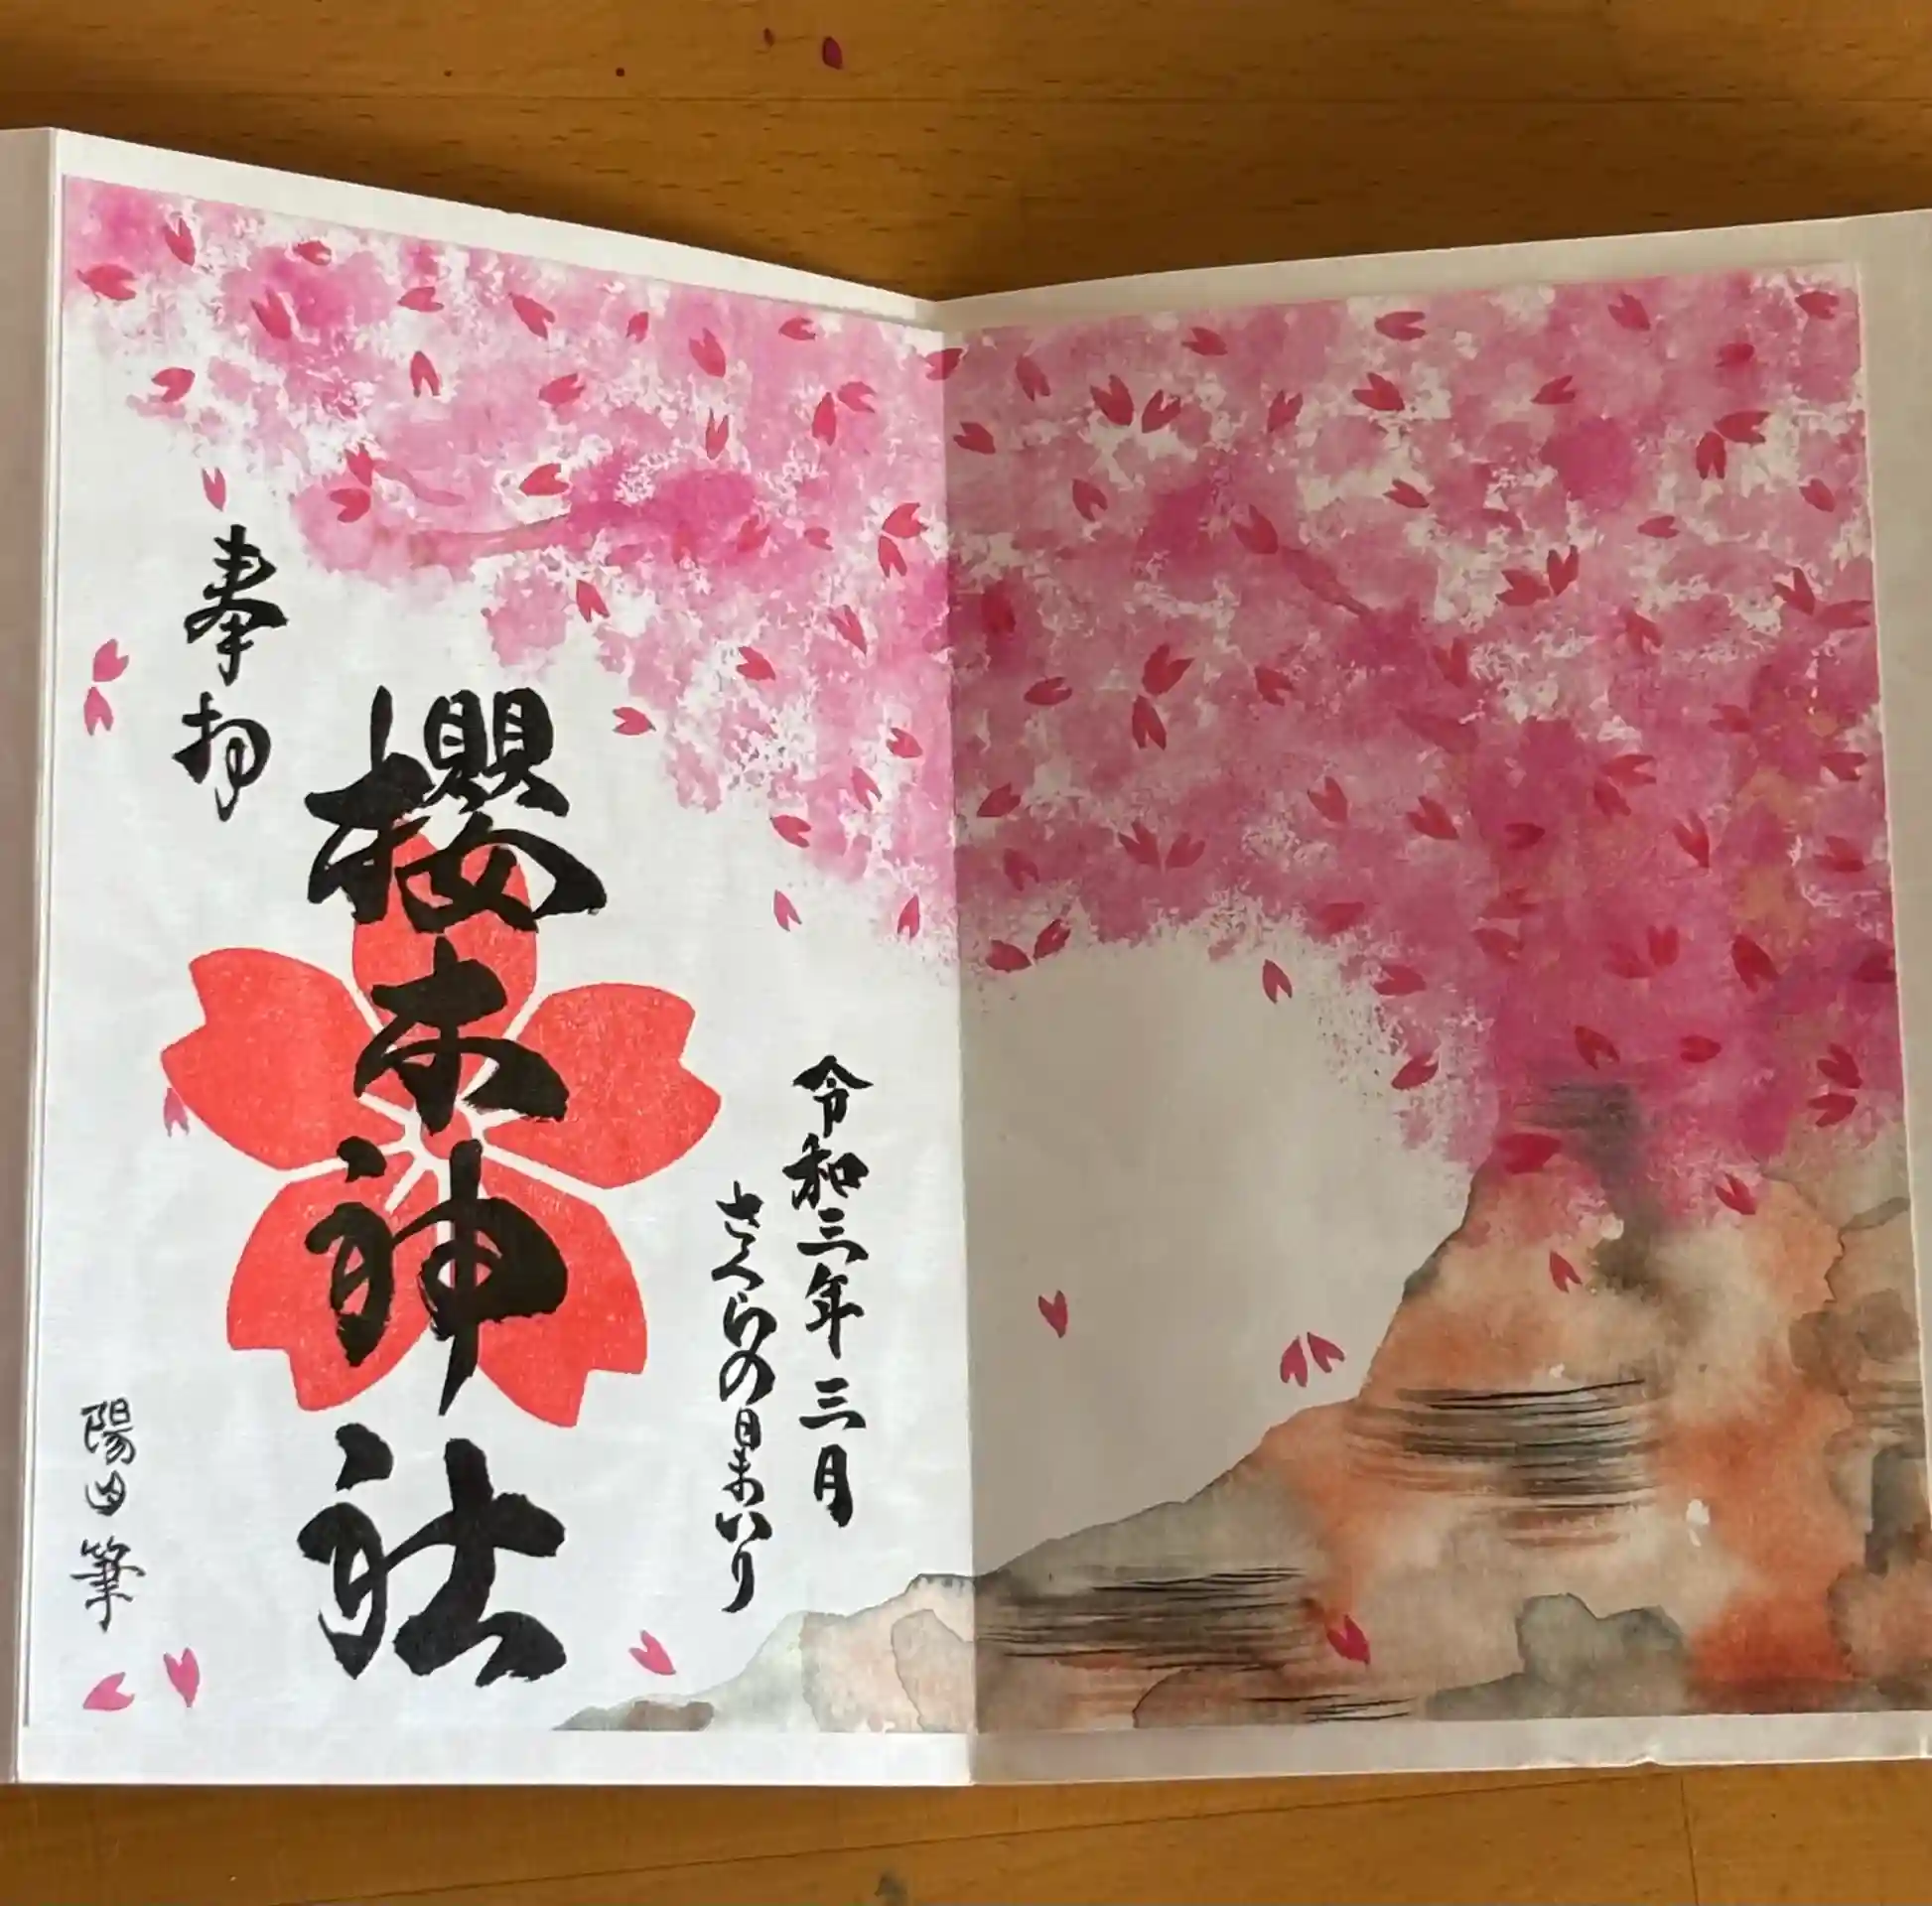 令和三年三月
さくらの日まいり
奉拝
櫻木神社
陽由筆